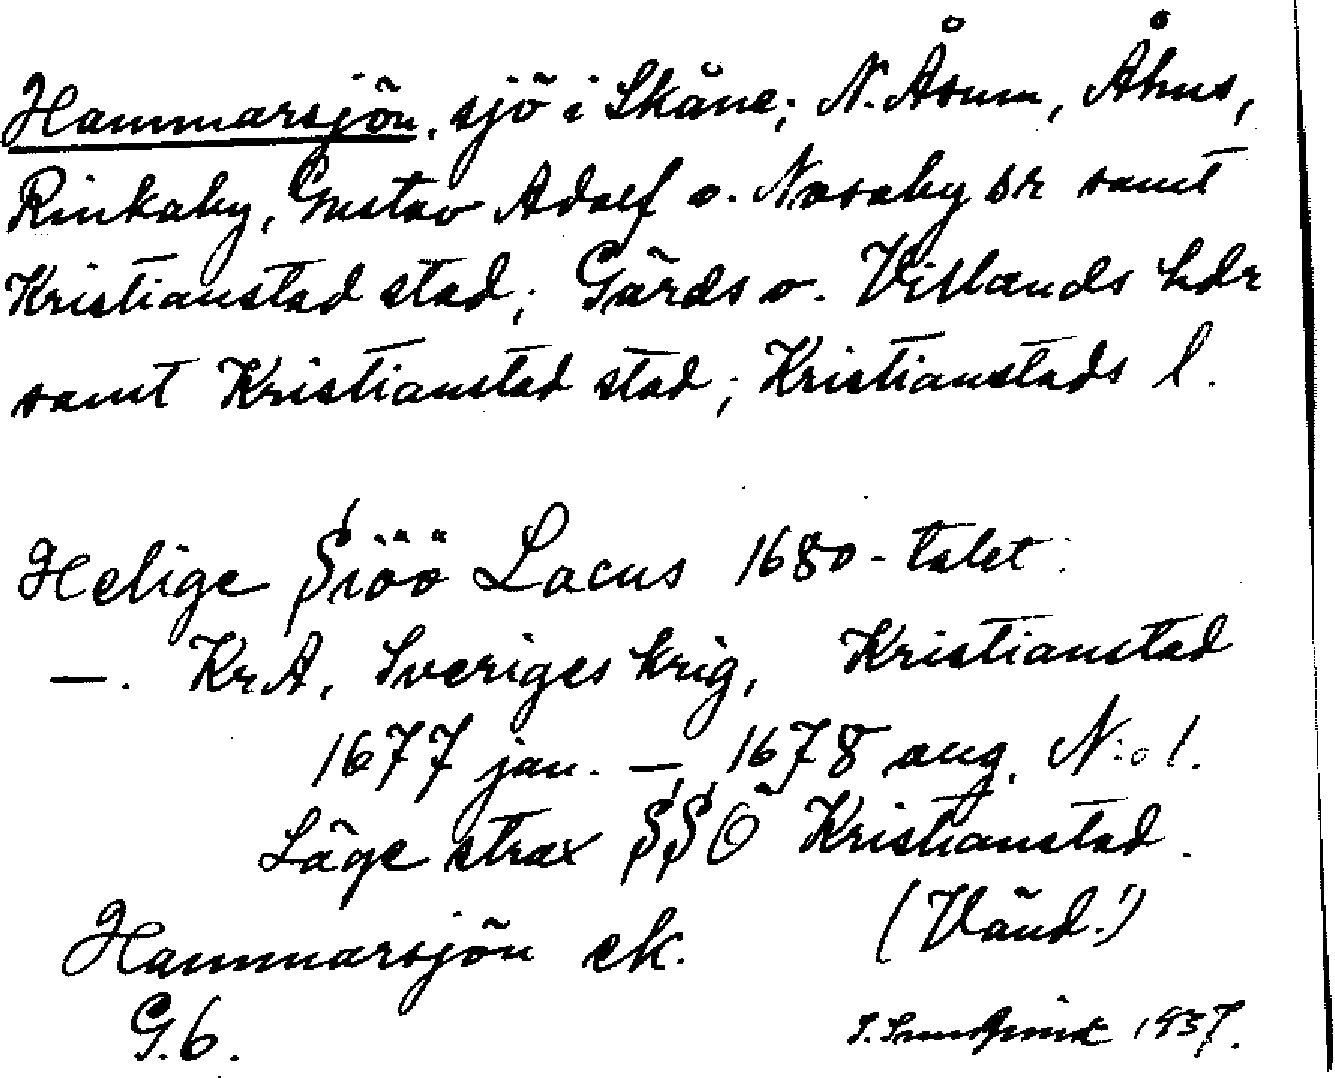 Hammarsjön, sjö i Skåne; N. Åsum, Åhus,
Rinkaby, Gustav Adolf o. Nosaby sr samt
Kristianstad stad; Gärds o. Villands hdr
samt Kristianstad stad; Kristianstads l.
Helige Siöö Lacus 1680-talet.
—. KrA, Sveriges krig, Kristianstad
1677 jan. — 1678 aug. N:o 1.
Läge strax SSÖ Kristianstad.
Hammarsjön ek. (Vänd!)
G.6. 1937.